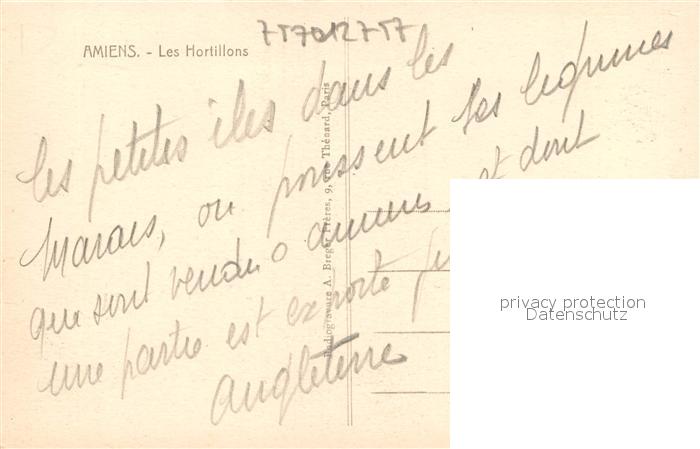 757012757
AMIENS. - Les Hortillons
les petites iles dans les
marais, ou poussent les legumes
que sont vendu a amiens et dont
une partie est exporte
angleterre
Radiogravure A. Breger Frères, 9, rue Thénard, Paris
privacy protection
Datenschutz